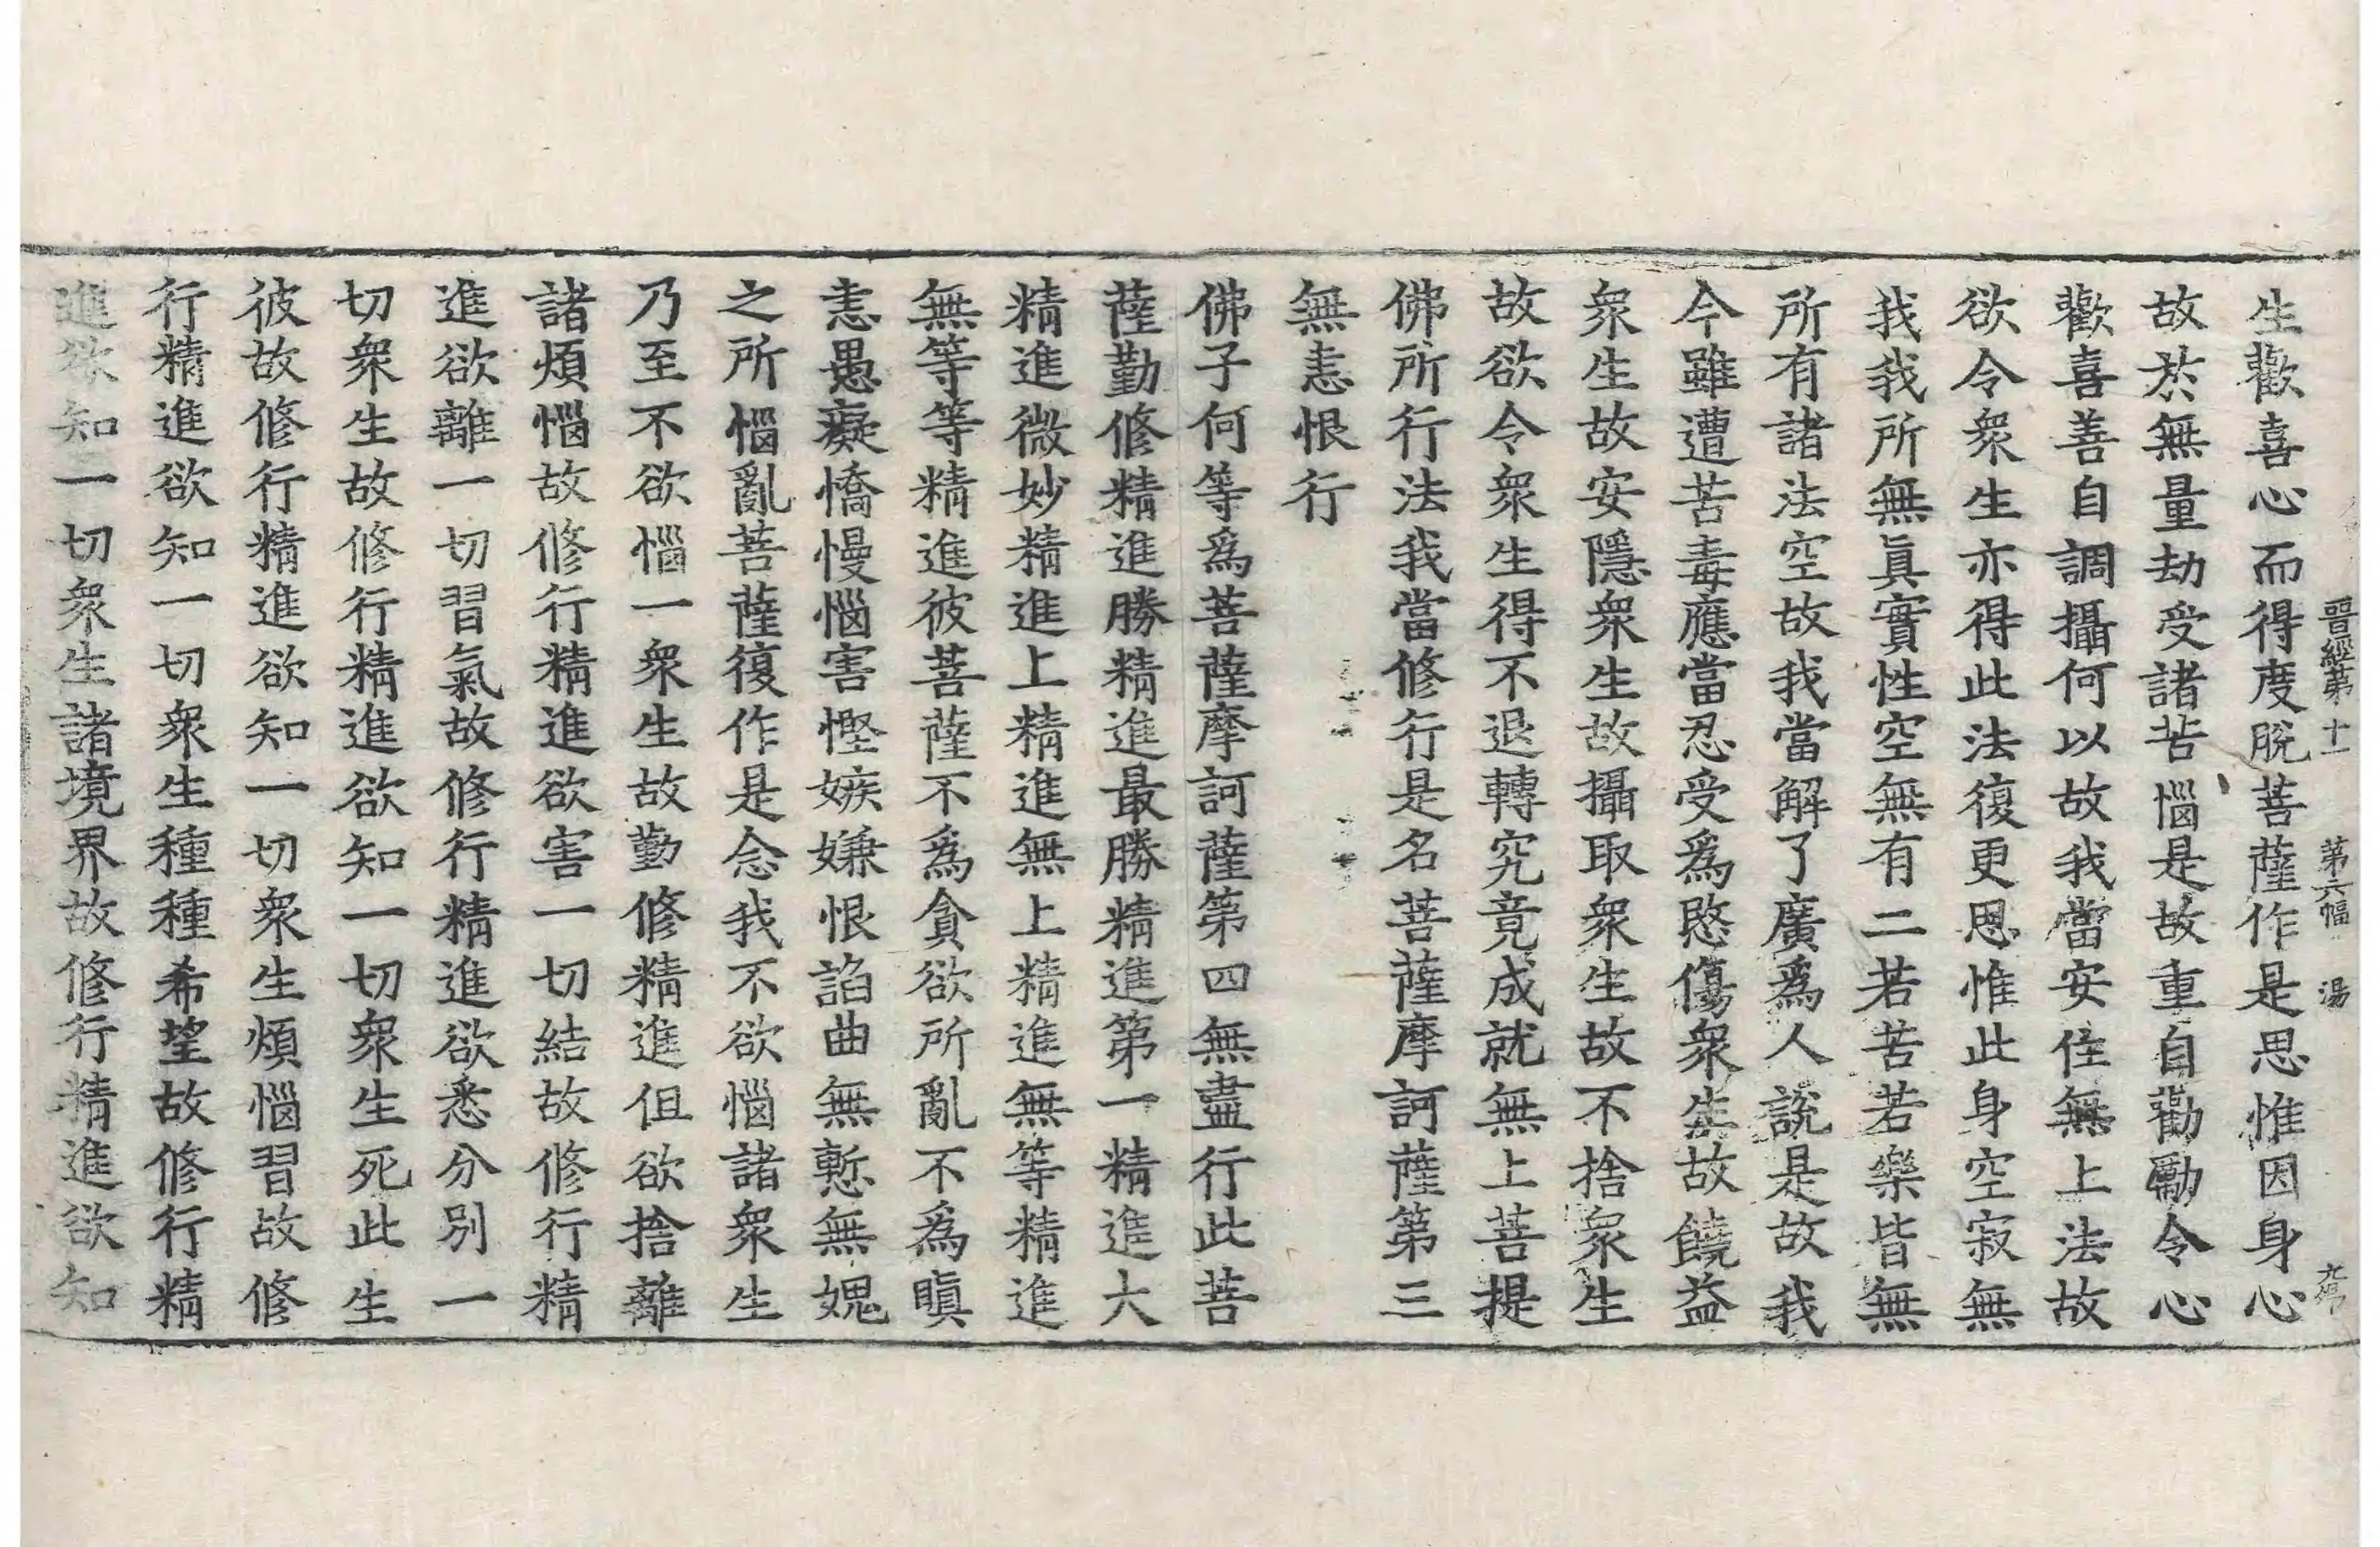 晉經第十一 第六幅 湯
生歡喜心而得度脫菩薩作是思惟因身心
故於無量劫受諸苦惱是故重自勸勵令心
歡喜善自調攝何以故我當安住無上法故
欲令衆生亦得此法復更思惟此身空寂無
我我所無眞實性空無有二若苦若樂皆無
所有諸法空故我當解了廣爲人說是故我
今雖遭苦毒應當忍受爲愍傷衆生故饒益
衆生故安隱衆生故攝取衆生故不捨衆生
故欲令衆生得不退轉究竟成就無上菩提
佛所行法我當修行是名菩薩摩訶薩第三
無恚恨行
佛子何等爲菩薩摩訶薩第四無盡行此菩
薩勤修精進勝精進最勝精進第一精進大
精進微妙精進上精進無上精進無等精進
無等等精進彼菩薩不爲貪欲所亂不爲瞋
恚愚癡憍慢惱害慳嫉嫌恨諂曲無慙無媿
之所惱亂菩薩復作是念我不欲惱諸衆生
乃至不欲惱一衆生故勤修精進但欲捨離
諸煩惱故修行精進欲害一切結故修行精
進欲離一切習氣故修行精進欲悉分別一
切衆生故修行精進欲知一切衆生死此生
彼故修行精進欲知一切衆生煩惱習故修
行精進欲知一切衆生種種希望故修行精
進欲知一切衆生諸境界故修行精進欲知